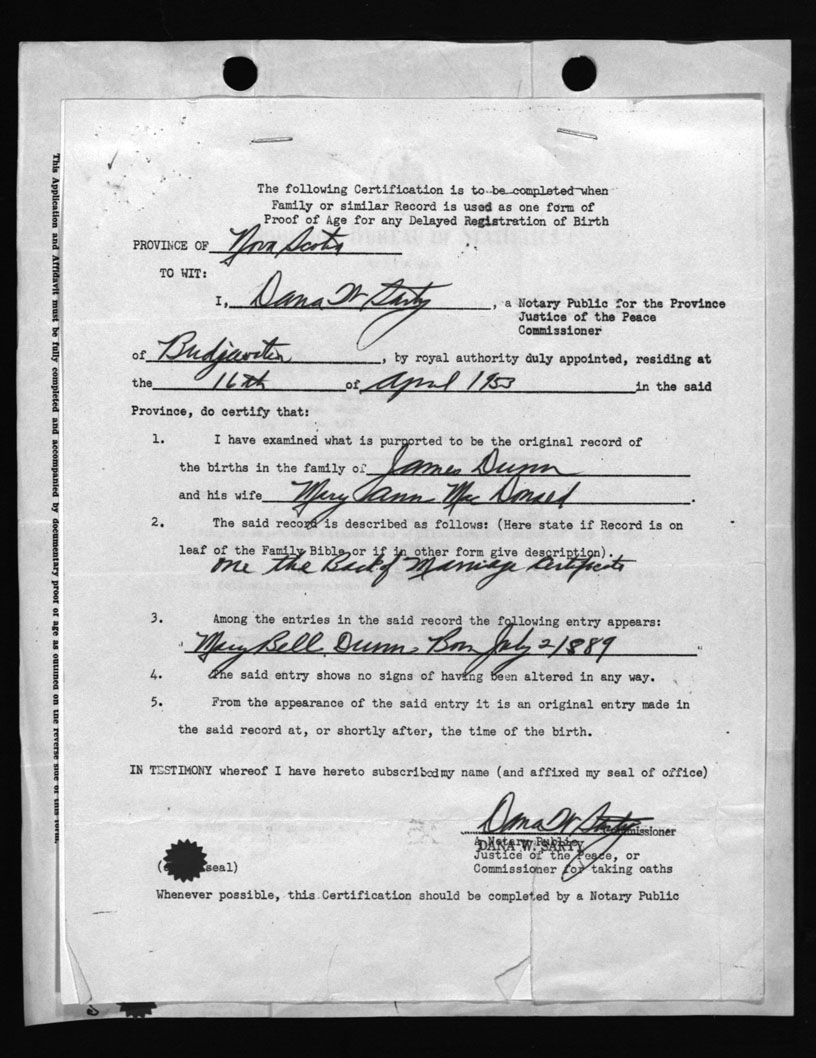 The following Certification is to be completed when
Family or similar Record is used as one form of
Proof of Age for any Delayed Registration of Birth
PROVINCE OF Nova Scotia
TO WIT:
I, Dana W Sarty, a Notary Public for the Province
Justice of the Peace
Commissioner
of Bridgewater, by royal authority duly appointed, residing at
the 16th of April 1953 in the said
Province, do certify that:
1. I have examined what is purported to be the original record of
the births in the family of James Dunn
and his wife Mary Ann Mac Donald.
2. The said record is described as follows: (Here state if Record is on
leaf of the Family Bible or if in other form give description).
one the Back of Marriage Certificate
3. Among the entries in the said record the following entry appears:
" Mary Bell Dunn Born July 2/1889 "
4. The said entry shows no signs of having been altered in any way.
5. From the appearance of the said entry it is an original entry made in
the said record at, or shortly after, the time of the birth.
IN TESTIMONY whereof I have hereto subscribed my name (and affixed my seal of office)
Dana W Sarty
A Notary Public
DANA W. SARTY
Justice of the Peace, or
Commissioner for taking oaths
seal)
Whenever possible, this Certification should be completed by a Notary Public
This Application and Affidavit must be fully completed and accompanied by documentary proof of age as outlined on the reverse side of this form.